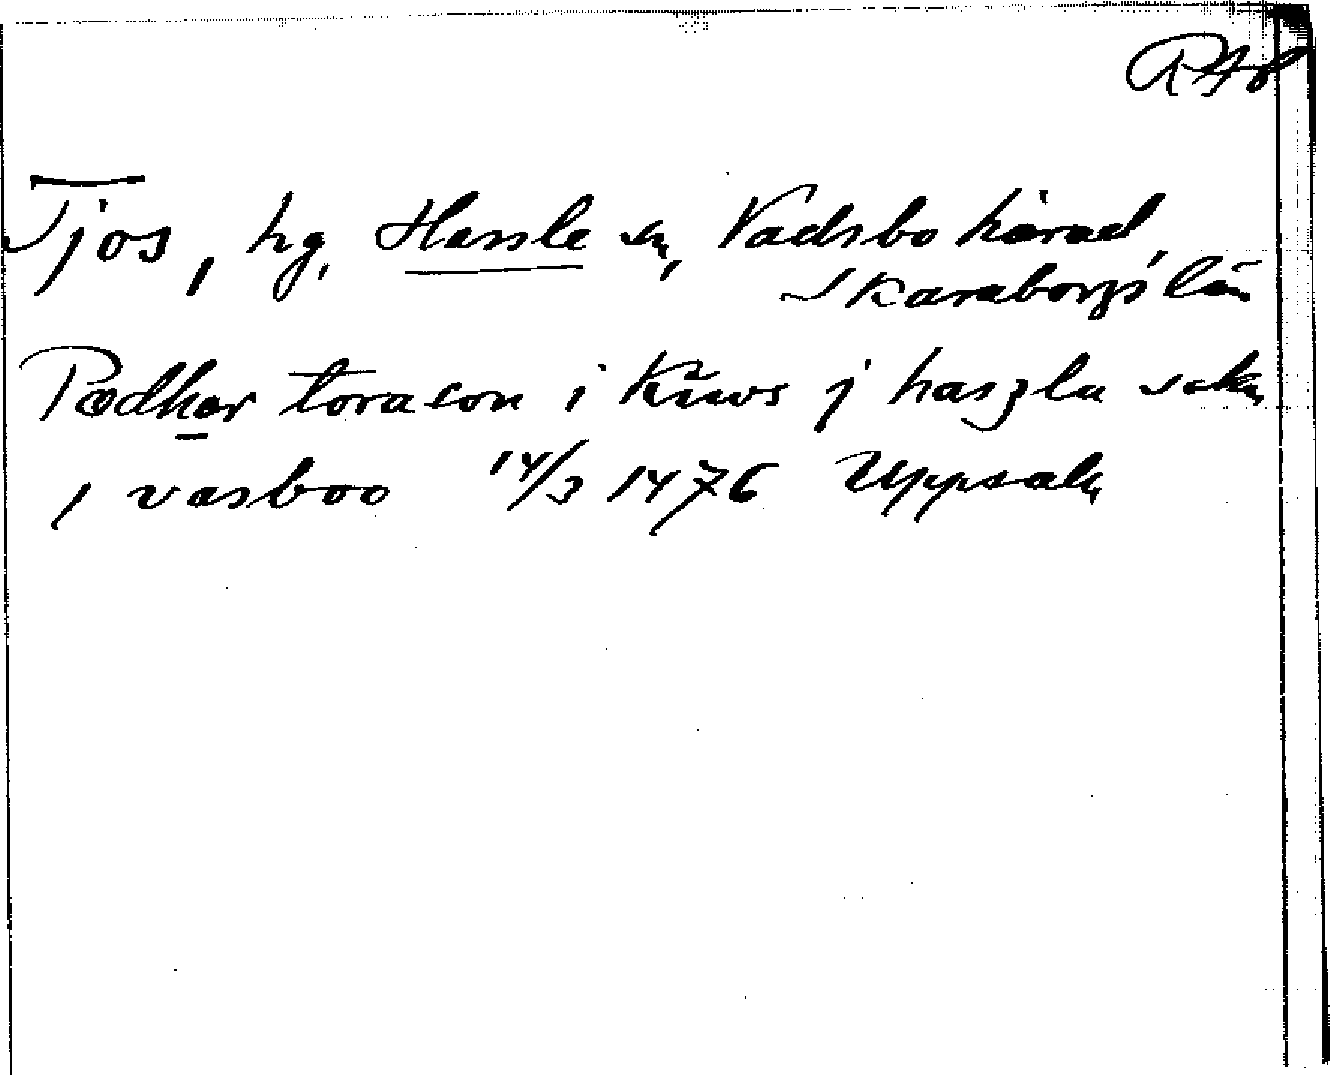 RAp
Tjos, hg, Hassle sn, Vadsbo härad,
Skaraborgs län
Pædhar torason i j haszla sokn
j vasboo 14/3 1476 Uppsala